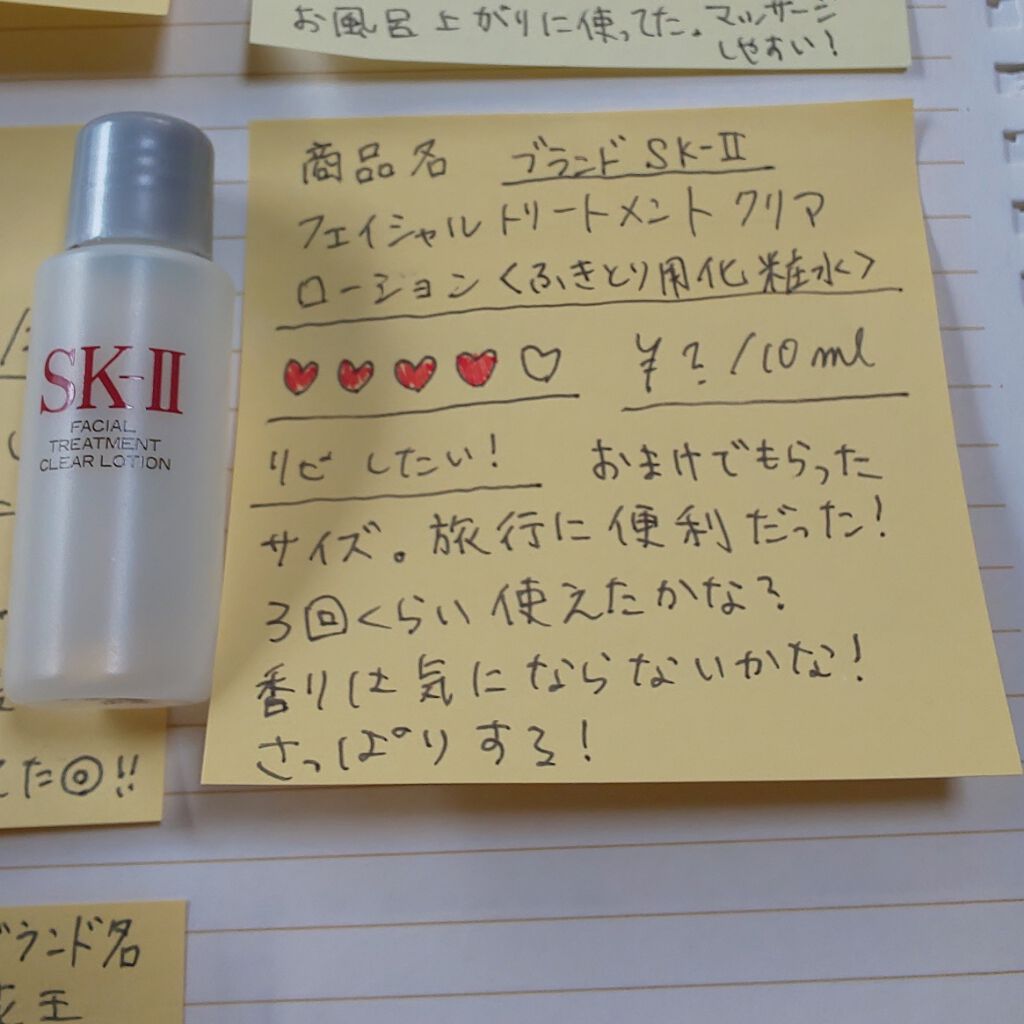 お風呂上がりに使ってた。マッサージ
しやすい!
商品名 ブランド SK-II
フェイシャル トリートメント クリア
ローション〈ふきとり用化粧水〉
¥?/10ml
リピしたい! おまけでもらった
サイズ。旅行に便利だった!
3回くらい使えたかな?
香りは気にならないかな!
さっぱりする!
SK-II
FACIAL
TREATMENT
CLEAR LOTION
てた◎!!
ブランド名
花王